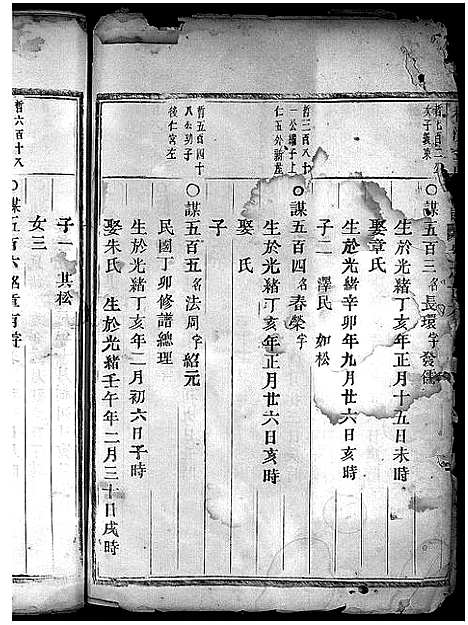 哲七百二公
次子襄東
〇謀五百三 名長環 字發儒
生於光緒丁亥年正月十五日未時
娶章氏
生於光緒辛卯年九月廿六日亥時
子二 澤民 如松
哲三百八十
一公繼子上
仁五外新屋
〇謀五百四 名春榮 字
生於光緒丁亥年正月廿六日亥時
娶 氏
子
哲五百四十
八公幼子
後仁宮左
〇謀五百五 名法周 字紹元
民國丁卯修譜總理
生於光緒丁亥年二月初六日子時
娶朱氏 生於光緒壬午年二月三十日戌時
子一 其松
女三
哲六百十八
〇謀五百六 名章有 字